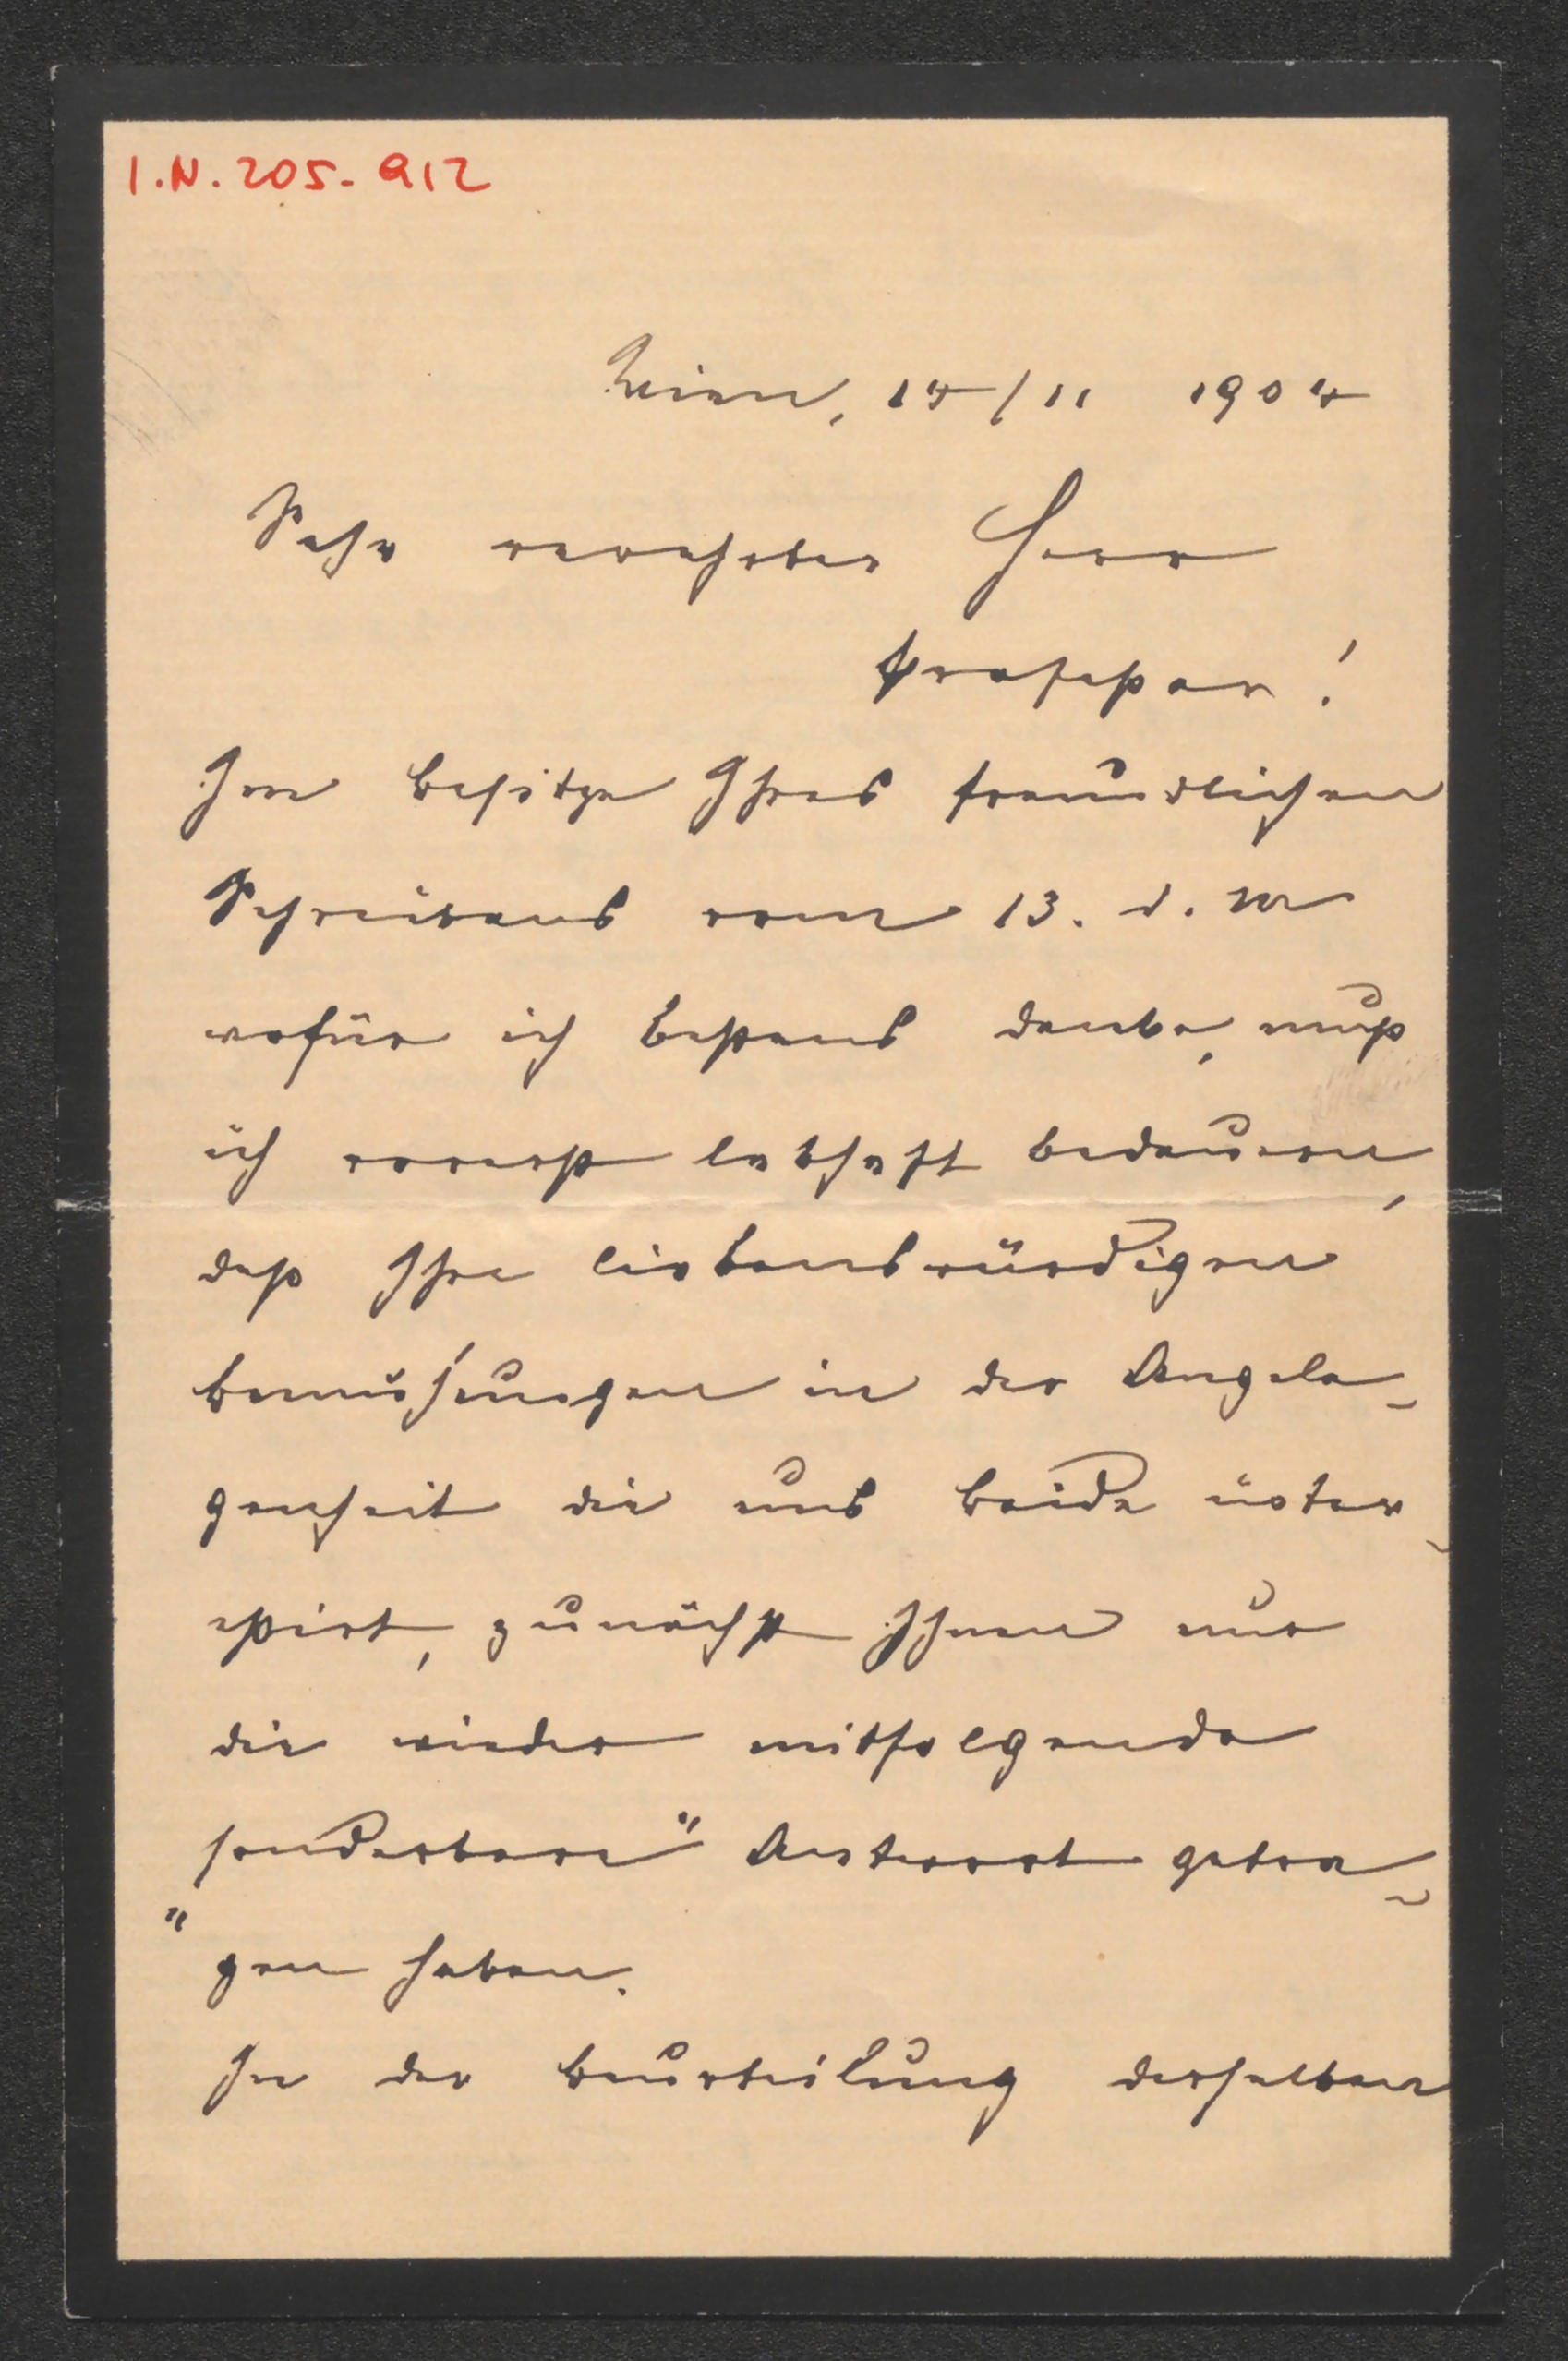 I.N. 205.912
Wien, 14/11 1904
Sehr verehrter Herr
Professor!
Im Besitze Ihres freundlichen
Schreibens vom 13. d. M
wofür ich bestens danke, muß
ich vorerst lebhaft bedauern,
daß Ihre liebenswürdigen
Bemühungen in der Angele-
genheit die uns beide inter-
essirt, zunächst Ihnen nur
die wieder mitfolgende
„sonderbare" Antwort getra-
gen haben.
In der Beurteilung derselben